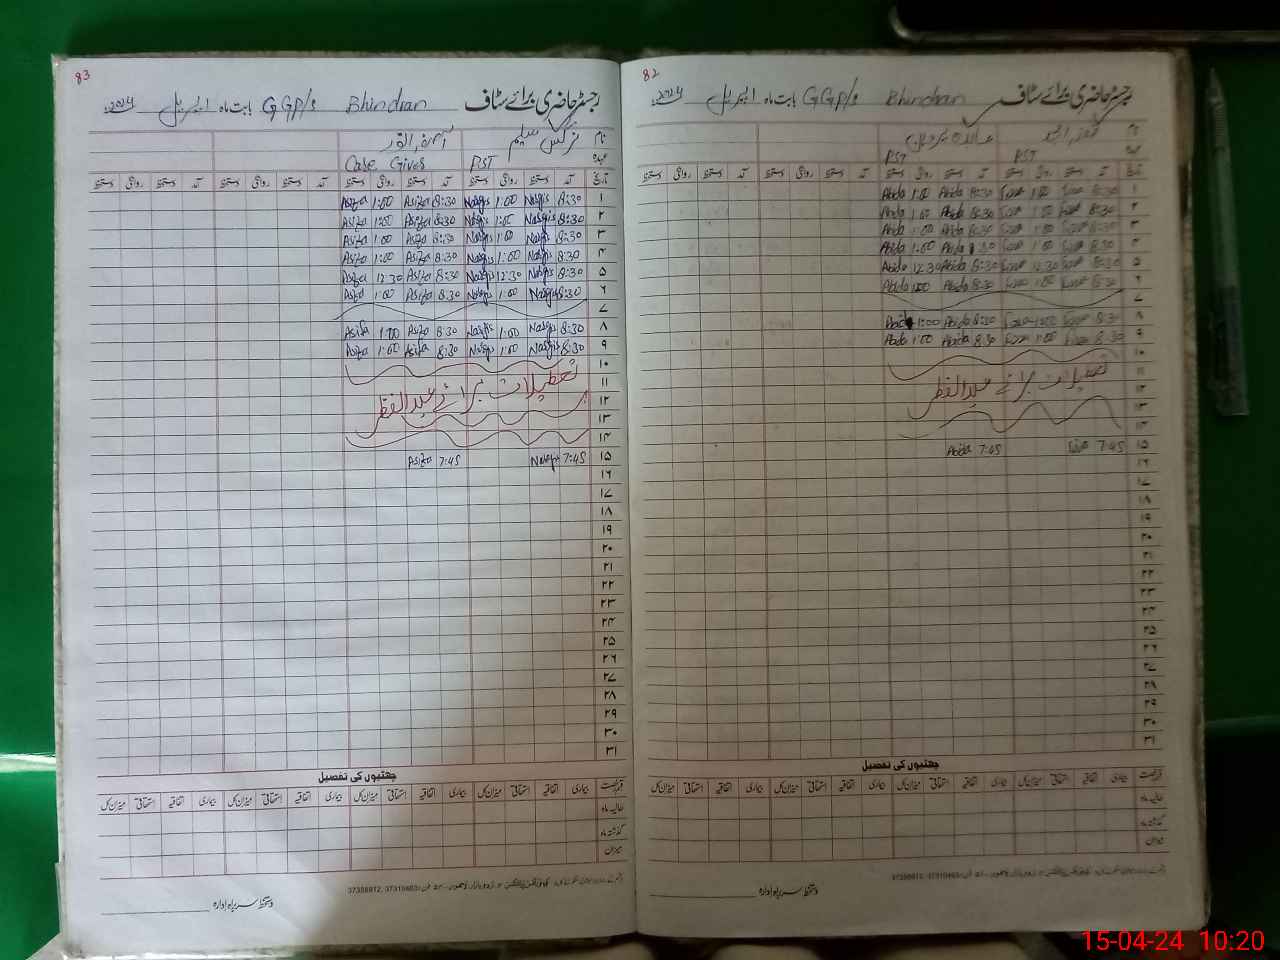 82
رجسٹر حاضری برائے سٹاف Bhindran GGP/s بابت ماہ اپریل 2024ء
نام
عہدہ PST PST
تاریخ آمد دستخط روانگی دستخط آمد دستخط روانگی دستخط آمد دستخط روانگی دستخط آمد دستخط روانگی دستخط
۱ 8:30 1:00 8:30 Abida 1:00 Abida
۲ 8:30 1:00 8:30 Abida 1:00 Abida
۳ 8:30 1:00 8:30 Abida 1:00 Abida
۴ 8:30 1:00 8:30 Abida 1:00 Abida
۵ 8:30 12:30 8:30 Abida 12:30 Abida
۶ 8:30 1:00 8:30 Abida 1:00 Abida
۷
۸ 8:30 1:00 8:30 Abida 1:00 Abida
۹ 8:30 1:00 8:30 Abida 1:00 Abida
۱۰
۱۱ تعطیلات برائے عیدالفطر
۱۲
۱۳
۱۴
۱۵ 7:45 7:45 Abida
۱۶
۱۷
۱۸
۱۹
۲۰
۲۱
۲۲
۲۳
۲۴
۲۵
۲۶
۲۷
۲۸
۲۹
۳۰
۳۱
چھٹیوں کی تفصیل
قسم رخصت بیماری اتفاقیہ استحقاقی میزان کل بیماری اتفاقیہ استحقاقی میزان کل بیماری اتفاقیہ استحقاقی میزان کل بیماری اتفاقیہ استحقاقی میزان کل
حالیہ ماہ
گذشتہ ماہ
میزان
37319463، 37358912
دستخط سربراہ ادارہ
83
رجسٹر حاضری برائے سٹاف Bhindran GGP/s بابت ماہ اپریل 2024ء
نام نرگس سلیم
عہدہ PST Care Giver
تاریخ آمد دستخط روانگی دستخط آمد دستخط روانگی دستخط آمد دستخط روانگی دستخط آمد دستخط روانگی دستخط
۱ 8:30 Nargis 1:00 Nargis 8:30 Asifa 1:00 Asifa
۲ 8:30 Nargis 1:00 Nargis 8:30 Asifa 1:00 Asifa
۳ 8:30 Nargis 1:00 Nargis 8:30 Asifa 1:00 Asifa
۴ 8:30 Nargis 1:00 Nargis 8:30 Asifa 1:00 Asifa
۵ 8:30 Nargis 12:30 Nargis 8:30 Asifa 12:30 Asifa
۶ 8:30 Nargis 1:00 Nargis 8:30 Asifa 1:00 Asifa
۷
۸ 8:30 Nargis 1:00 Nargis 8:30 Asifa 1:00 Asifa
۹ 8:30 Nargis 1:00 Nargis 8:30 Asifa 1:00 Asifa
۱۰
۱۱ تعطیلات برائے عیدالفطر
۱۲
۱۳
۱۴
۱۵ 7:45 Nargis 7:45 Asifa
۱۶
۱۷
۱۸
۱۹
۲۰
۲۱
۲۲
۲۳
۲۴
۲۵
۲۶
۲۷
۲۸
۲۹
۳۰
۳۱
چھٹیوں کی تفصیل
قسم رخصت بیماری اتفاقیہ استحقاقی میزان کل بیماری اتفاقیہ استحقاقی میزان کل بیماری اتفاقیہ استحقاقی میزان کل بیماری اتفاقیہ استحقاقی میزان کل
حالیہ ماہ
گذشتہ ماہ
میزان
37319463، 37358912
دستخط سربراہ ادارہ
15-04-24 10:20